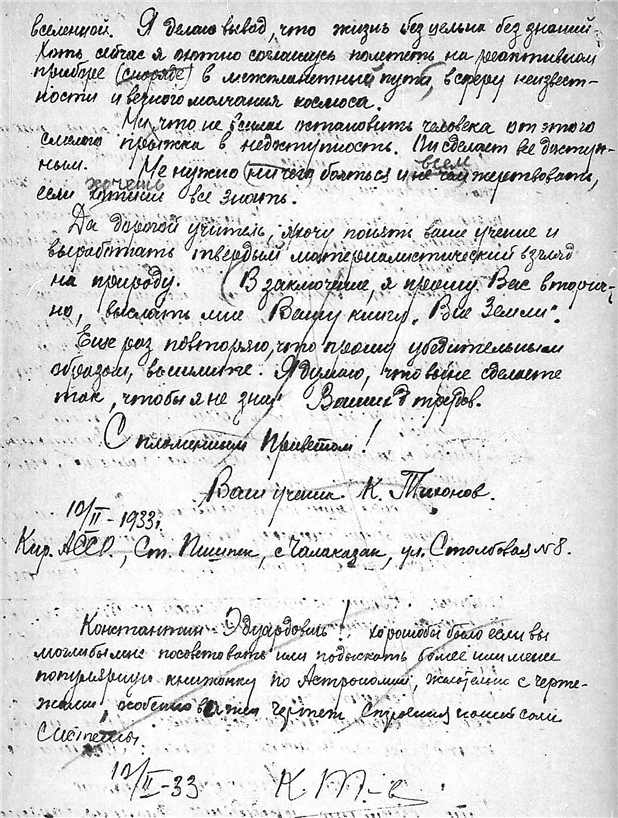 вселенной. Я делаю вывод, что жизнь бесцельна без знаний.
Хоть сейчас я охотно соглашусь полететь на реактивном
приборе (снаряде) в межпланетный путь, в сферу неизвест-
ности и вечного молчания космоса.
Ни что не в силах остановить человека от этого
смелого прыжка в недоступность. Он сделает ее доступ-
ным. Не нужно (ни чего) бояться и всем
не чем жертвовать,
хочешь
если хотим все знать.
Да дорогой учитель, я хочу понять ваше учение и
выработать твердый материалистический взгляд
на природу. В заключение, я прошу Вас вторич-
но, выслать мне Вашу книгу „Вне Земли".
Еще раз повторяю, что прошу убедительным
образом, вышлите. Я думаю, что вы не сделаете
так, чтобы я не знал Ваших трудов.
С пламенным Приветом!
Ваш ученик К. Тихонов.
10/II-1933г.
Кир. АССР, Ст. Пишпек, с Чалаказак, ул. Столбовая №8.
Константин Эдуардович! хорошобы было если вы
моглибы мне посоветовать или подыскать более или менее
популярную книжонку по Астрономии, желательно с черте-
жами, особенно важен чертеж строения нашей солн
системы.
10/II-33 К. Т-в